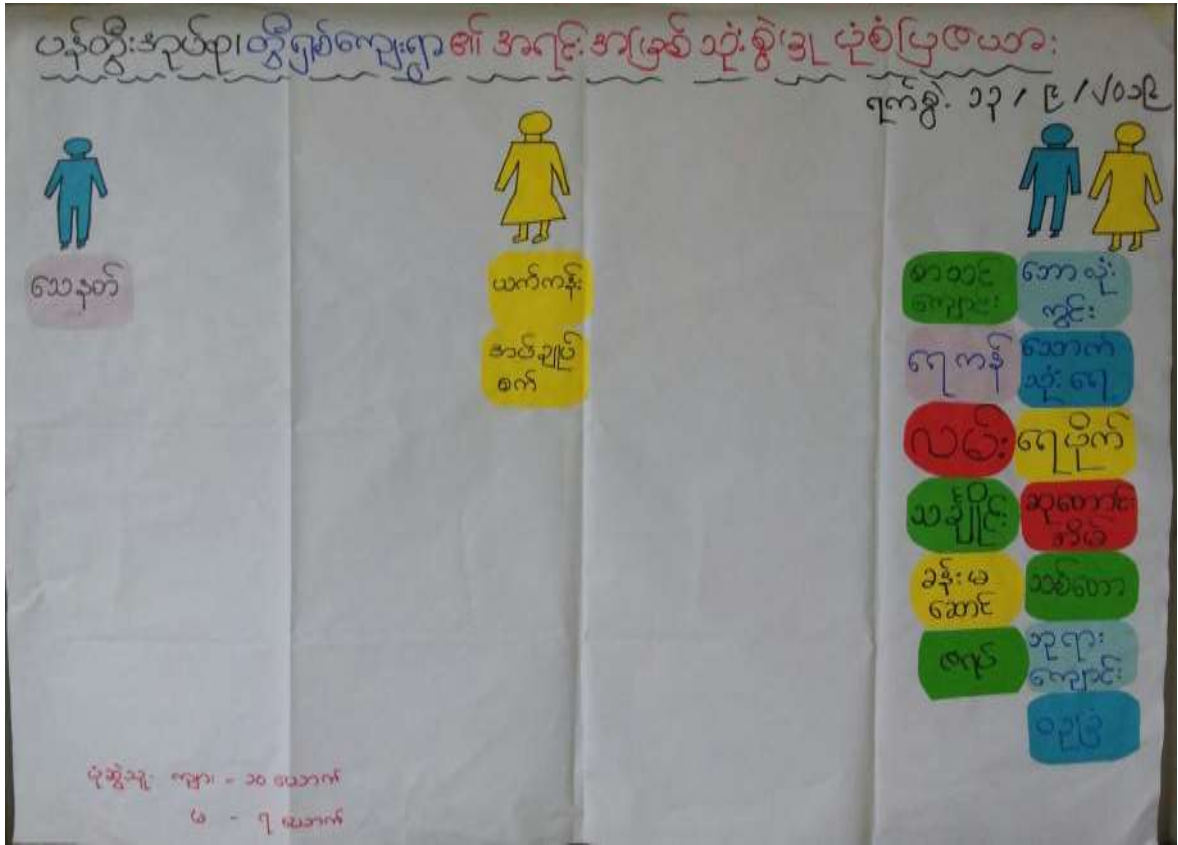 ပန်တွီးအုပ်စု၊ တွီရှစ်ကျေးရွာ၏ အရင်းအမြစ် သုံးစွဲမှု ပုံစံပြဇယား
ရက်စွဲ. ၁၃ / ၉ / ၂၀၁၉
သေနတ်
ယက်ကန်း
အပ်ချုပ်
စက်
စာသင်
ကျောင်း
ဘောလုံး
ကွင်း
ရေကန်
သောက်
သုံးရေ
လမ်း
ရေပိုက်
သချိုင်း
ဆုတောင်း
အိမ်
ခန်းမ
ဆောင်
သစ်တော
ဇရပ်
ဘုရား
ကျောင်း
ဝဥခြံ
ပုံဆွဲသူ ကျား - ၁၀ ယောက်
မ - ၇ ယောက်